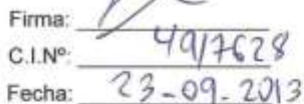 Firma:
C.I.Nº: 4917628
Fecha: 23-09-2013